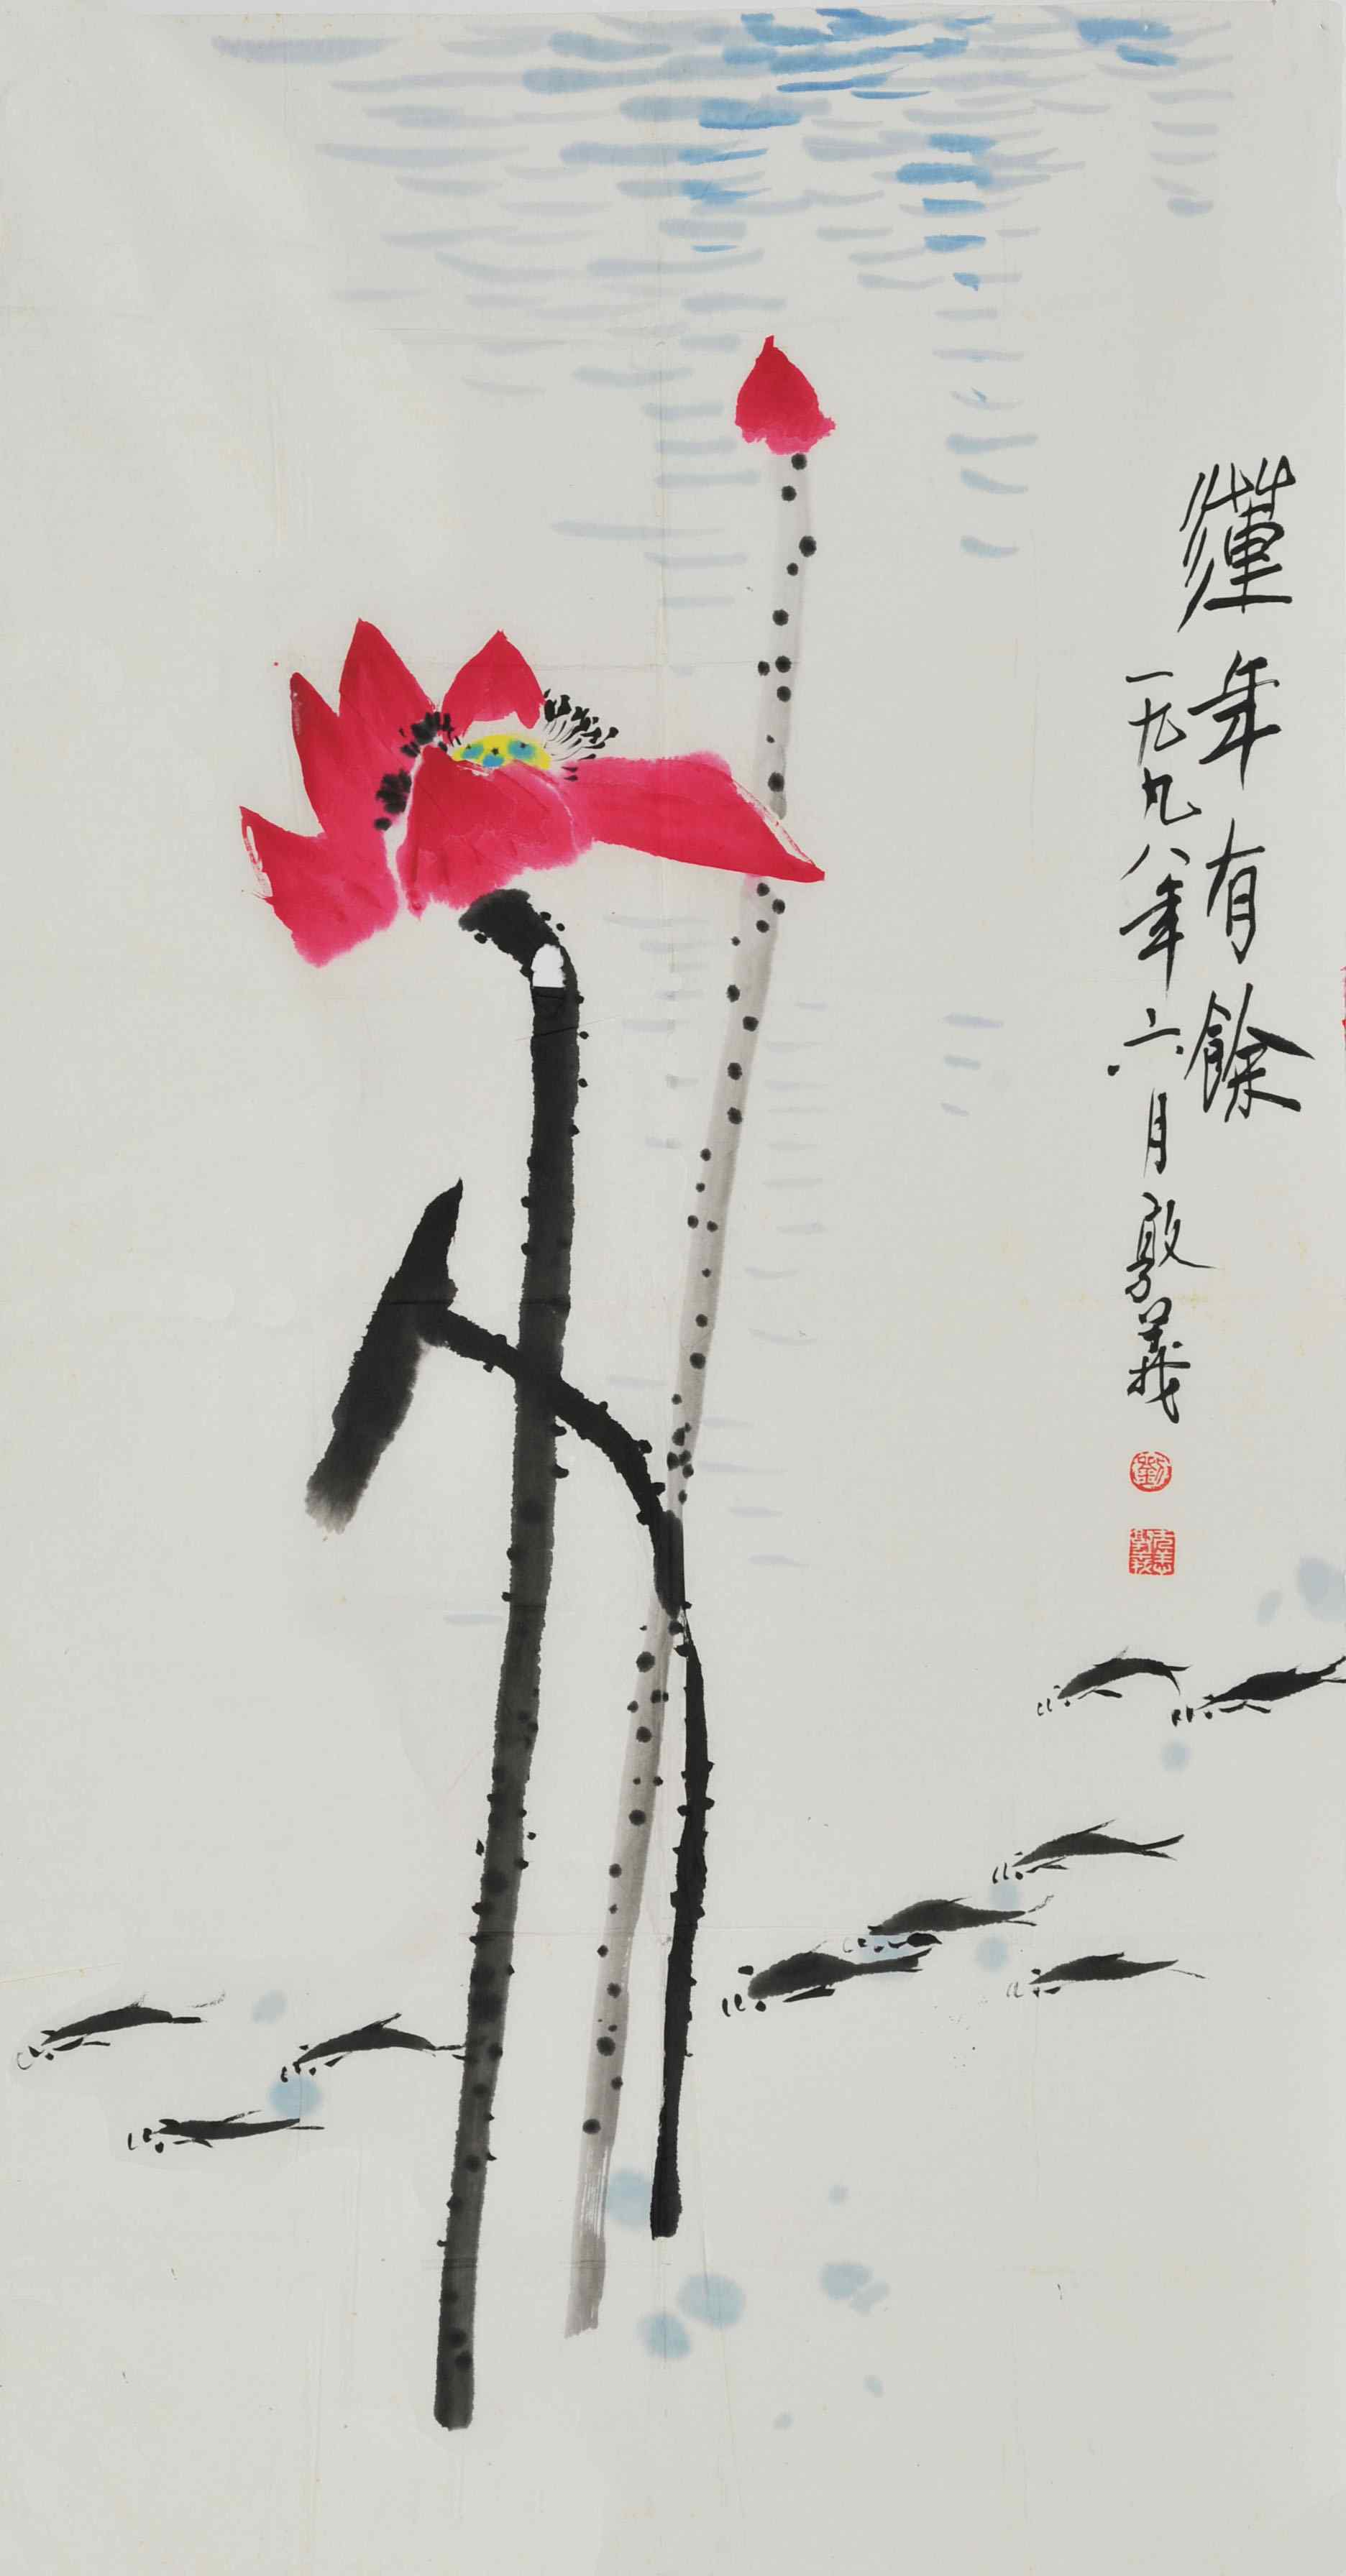 蓮年有餘
一九九八年六月敦義
劉